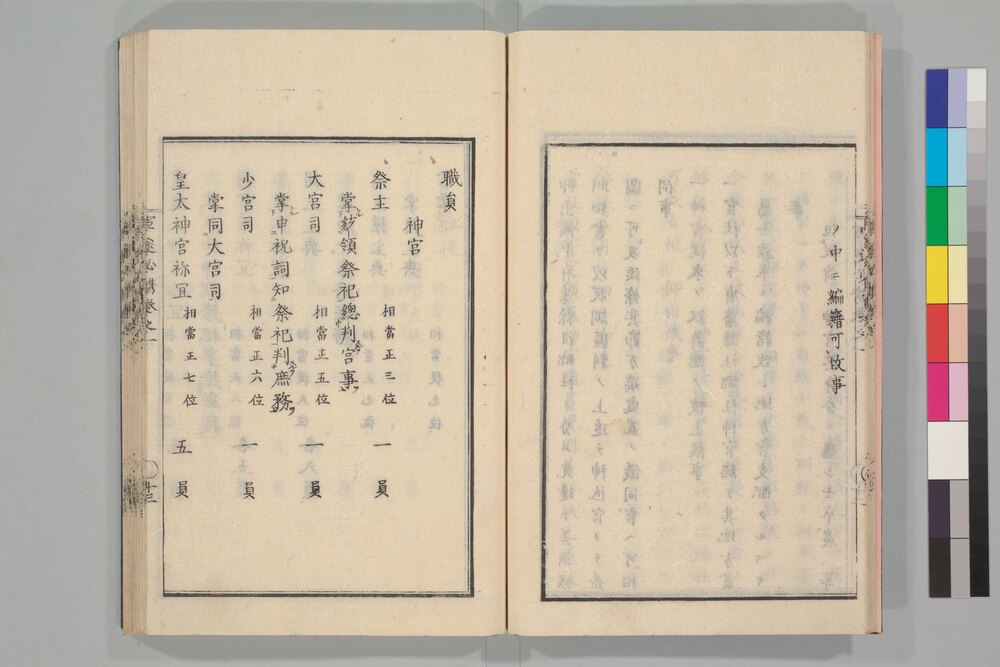 ノ中ニ編籍可致事
職員
神宮
祭主 相當正三位 一員
掌莅領祭祀總判宮事
大宮司 相當正五位 一員
掌申祝詞知祭祀判庶務
少宮司 相當正六位 一員
掌同大宮司
皇太神宮祢宜 相當正七位 五員